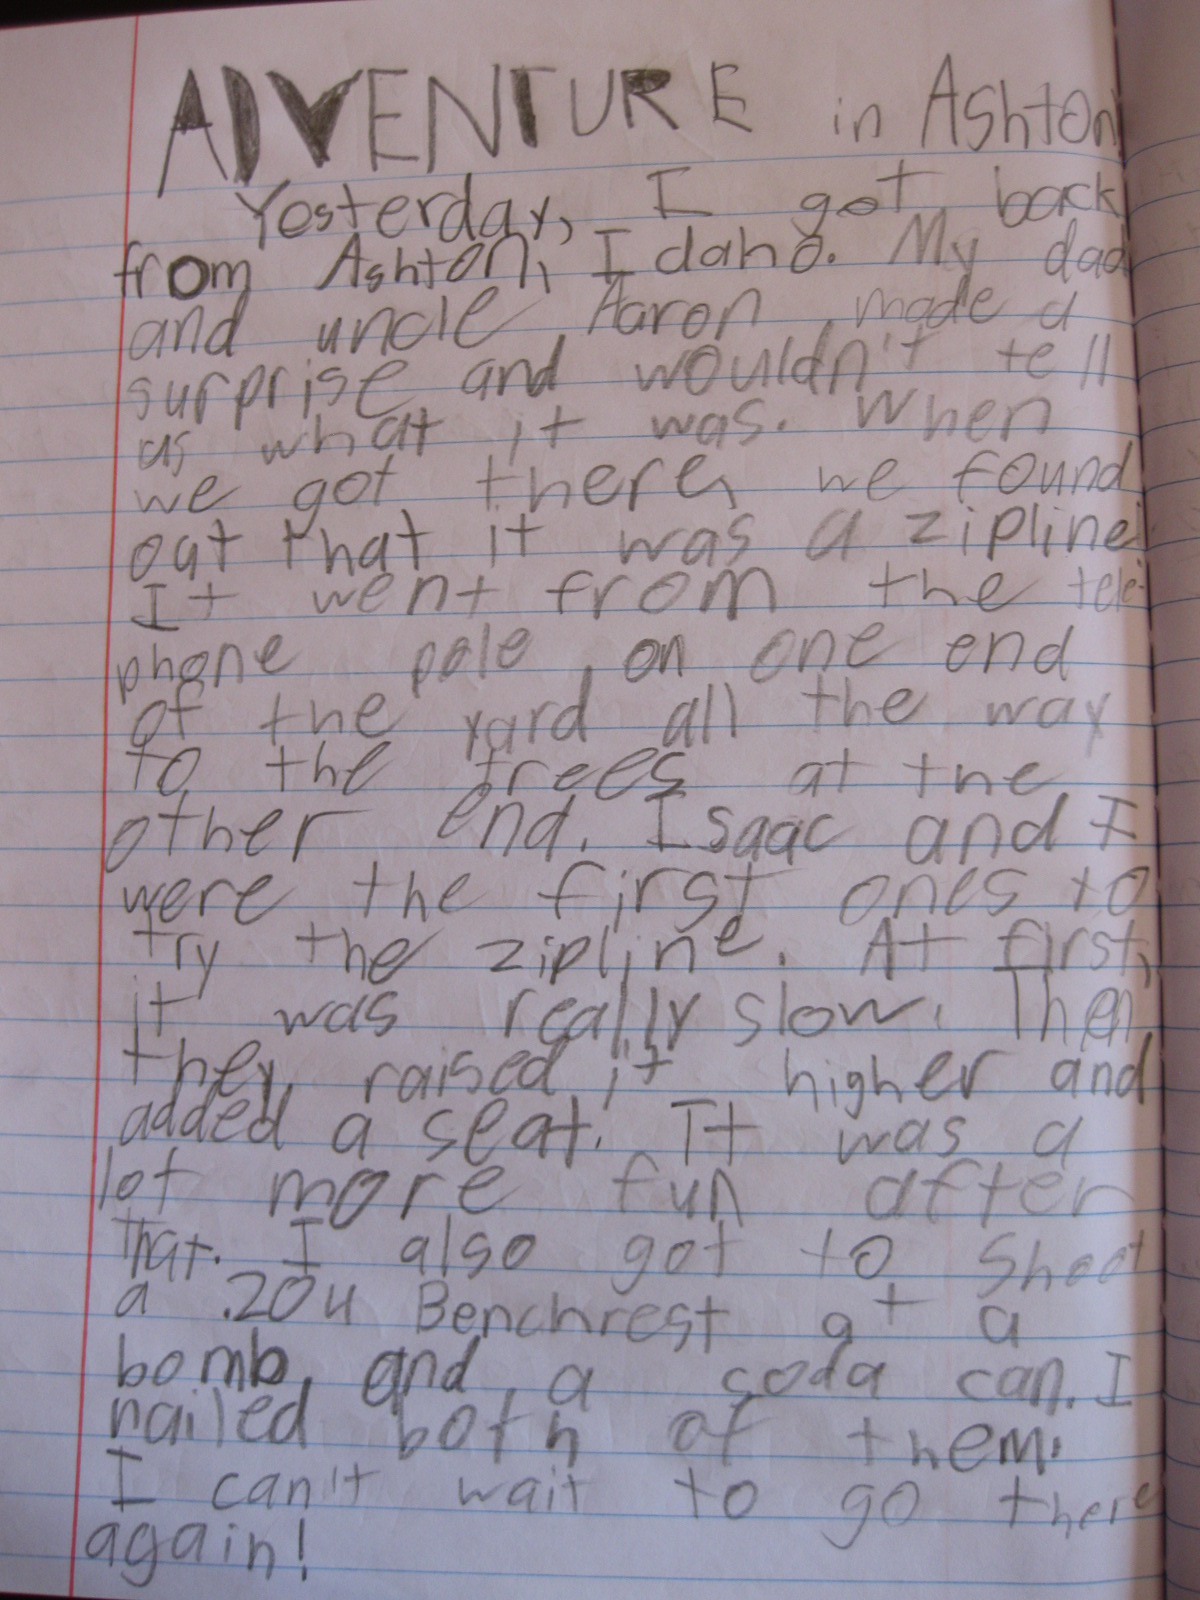 ADVENTURE in Ashton
Yesterday, I got back
from Ashton, Idaho. My dad
and uncle Aaron made a
surprise and wouldn't tell
us what it was. When
we got there, we found
out that it was a zipline.
It went from the tele-
phone pole on one end
of the yard all the way
to the trees at the
other end. Isaac and I
were the first ones to
try the zipline. At first,
it was really slow. Then,
they raised it higher and
added a seat. It was a
lot more fun after
that. I also got to shoot
a .204 Benchrest at a
bomb and a soda can. I
nailed both of them.
I can't wait to go there
again!